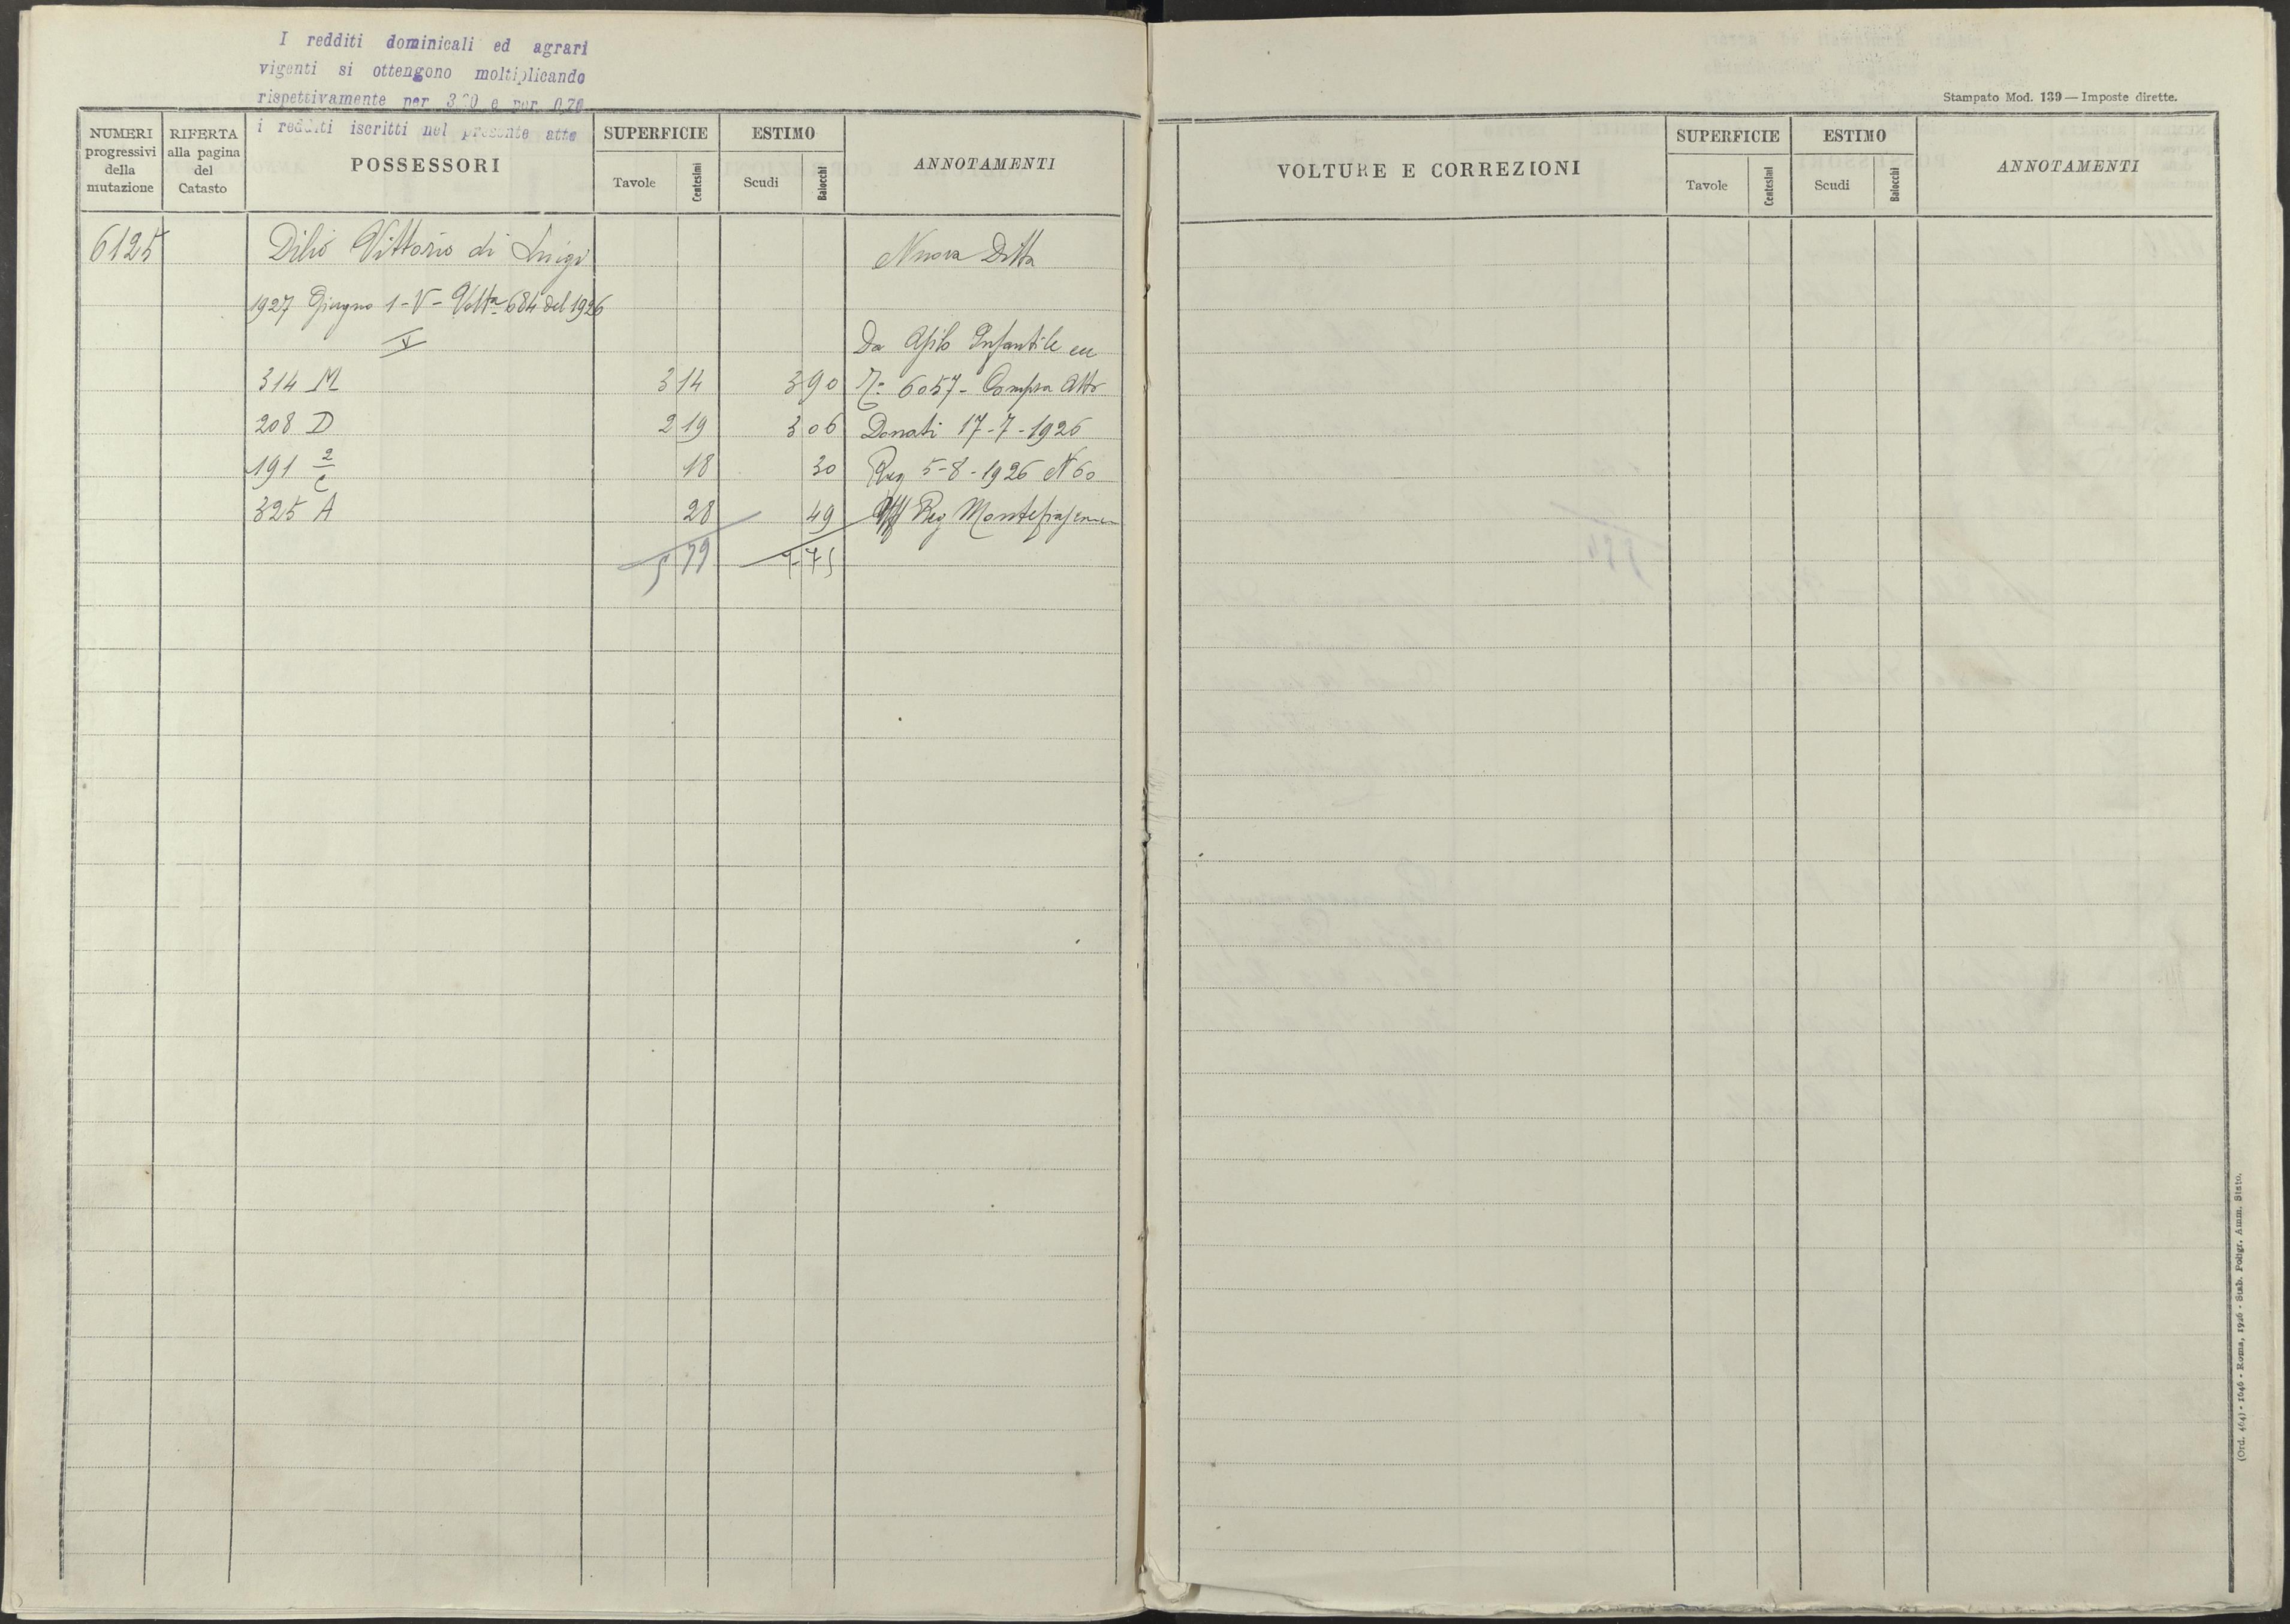 I redditi dominicali ed agrari
vigenti si ottengono moltiplicando
rispettivamente per 3.20 e per 0,70
i redditi iscritti nel presente atto
NUMERI
progressivi
della
mutazione
RIFERTA
alla pagina
del
Catasto
POSSESSORI
SUPERFICIE
Tavole
Centesimi
ESTIMO
Scudi
Baiocchi
ANNOTAMENTI
6125 Dilio Vittorio di Luigi Nuova Ditta
1927 Giugno 1-V- Voltª 684 del 1926
V Da Asilo Infantile
314 M 3 14 3 90 6057 - Compra Atto
208 D 2 19 3 06 Donati 17-7-1926
191 2/C 18 30 Reg 5-8-1926 N 60
325 A 28 49 Uff Reg
5 79 7 75
Stampato Mod. 139 — Imposte dirette.
VOLTURE E CORREZIONI
SUPERFICIE
Tavole
Centesimi
ESTIMO
Scudi
Baiocchi
ANNOTAMENTI
(Ord. 464) - 1646 - Roma, 1926 - Stab. Poligr. Amm. Stato.